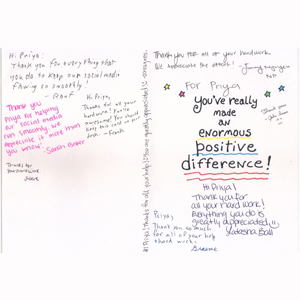 Hi Priya!
Thank you for everything that
you do to keep our social media
flowing so smoothly!
Thank you
Priya for helping
our social media
run smoothly. We
appreciate it more than
you know!
Sarah
Hi Priya,
Thanks for all your
hardwork! You're
awesome! You should
keep this card on your
desk.
Thanks for
your hard work
Hi Priya! Thanks for all your help!
Thank you for all of your hardwork.
We appreciate the
For Priya
You've really
made
an
enormous
positive
difference!
Thank you
Hi Priya!
Thank you for
all your hard work!
Everything you do is
greatly appreciated :)
Ball
Priya,
Thank you so much
for all of your help
+ hard work.
Graeme